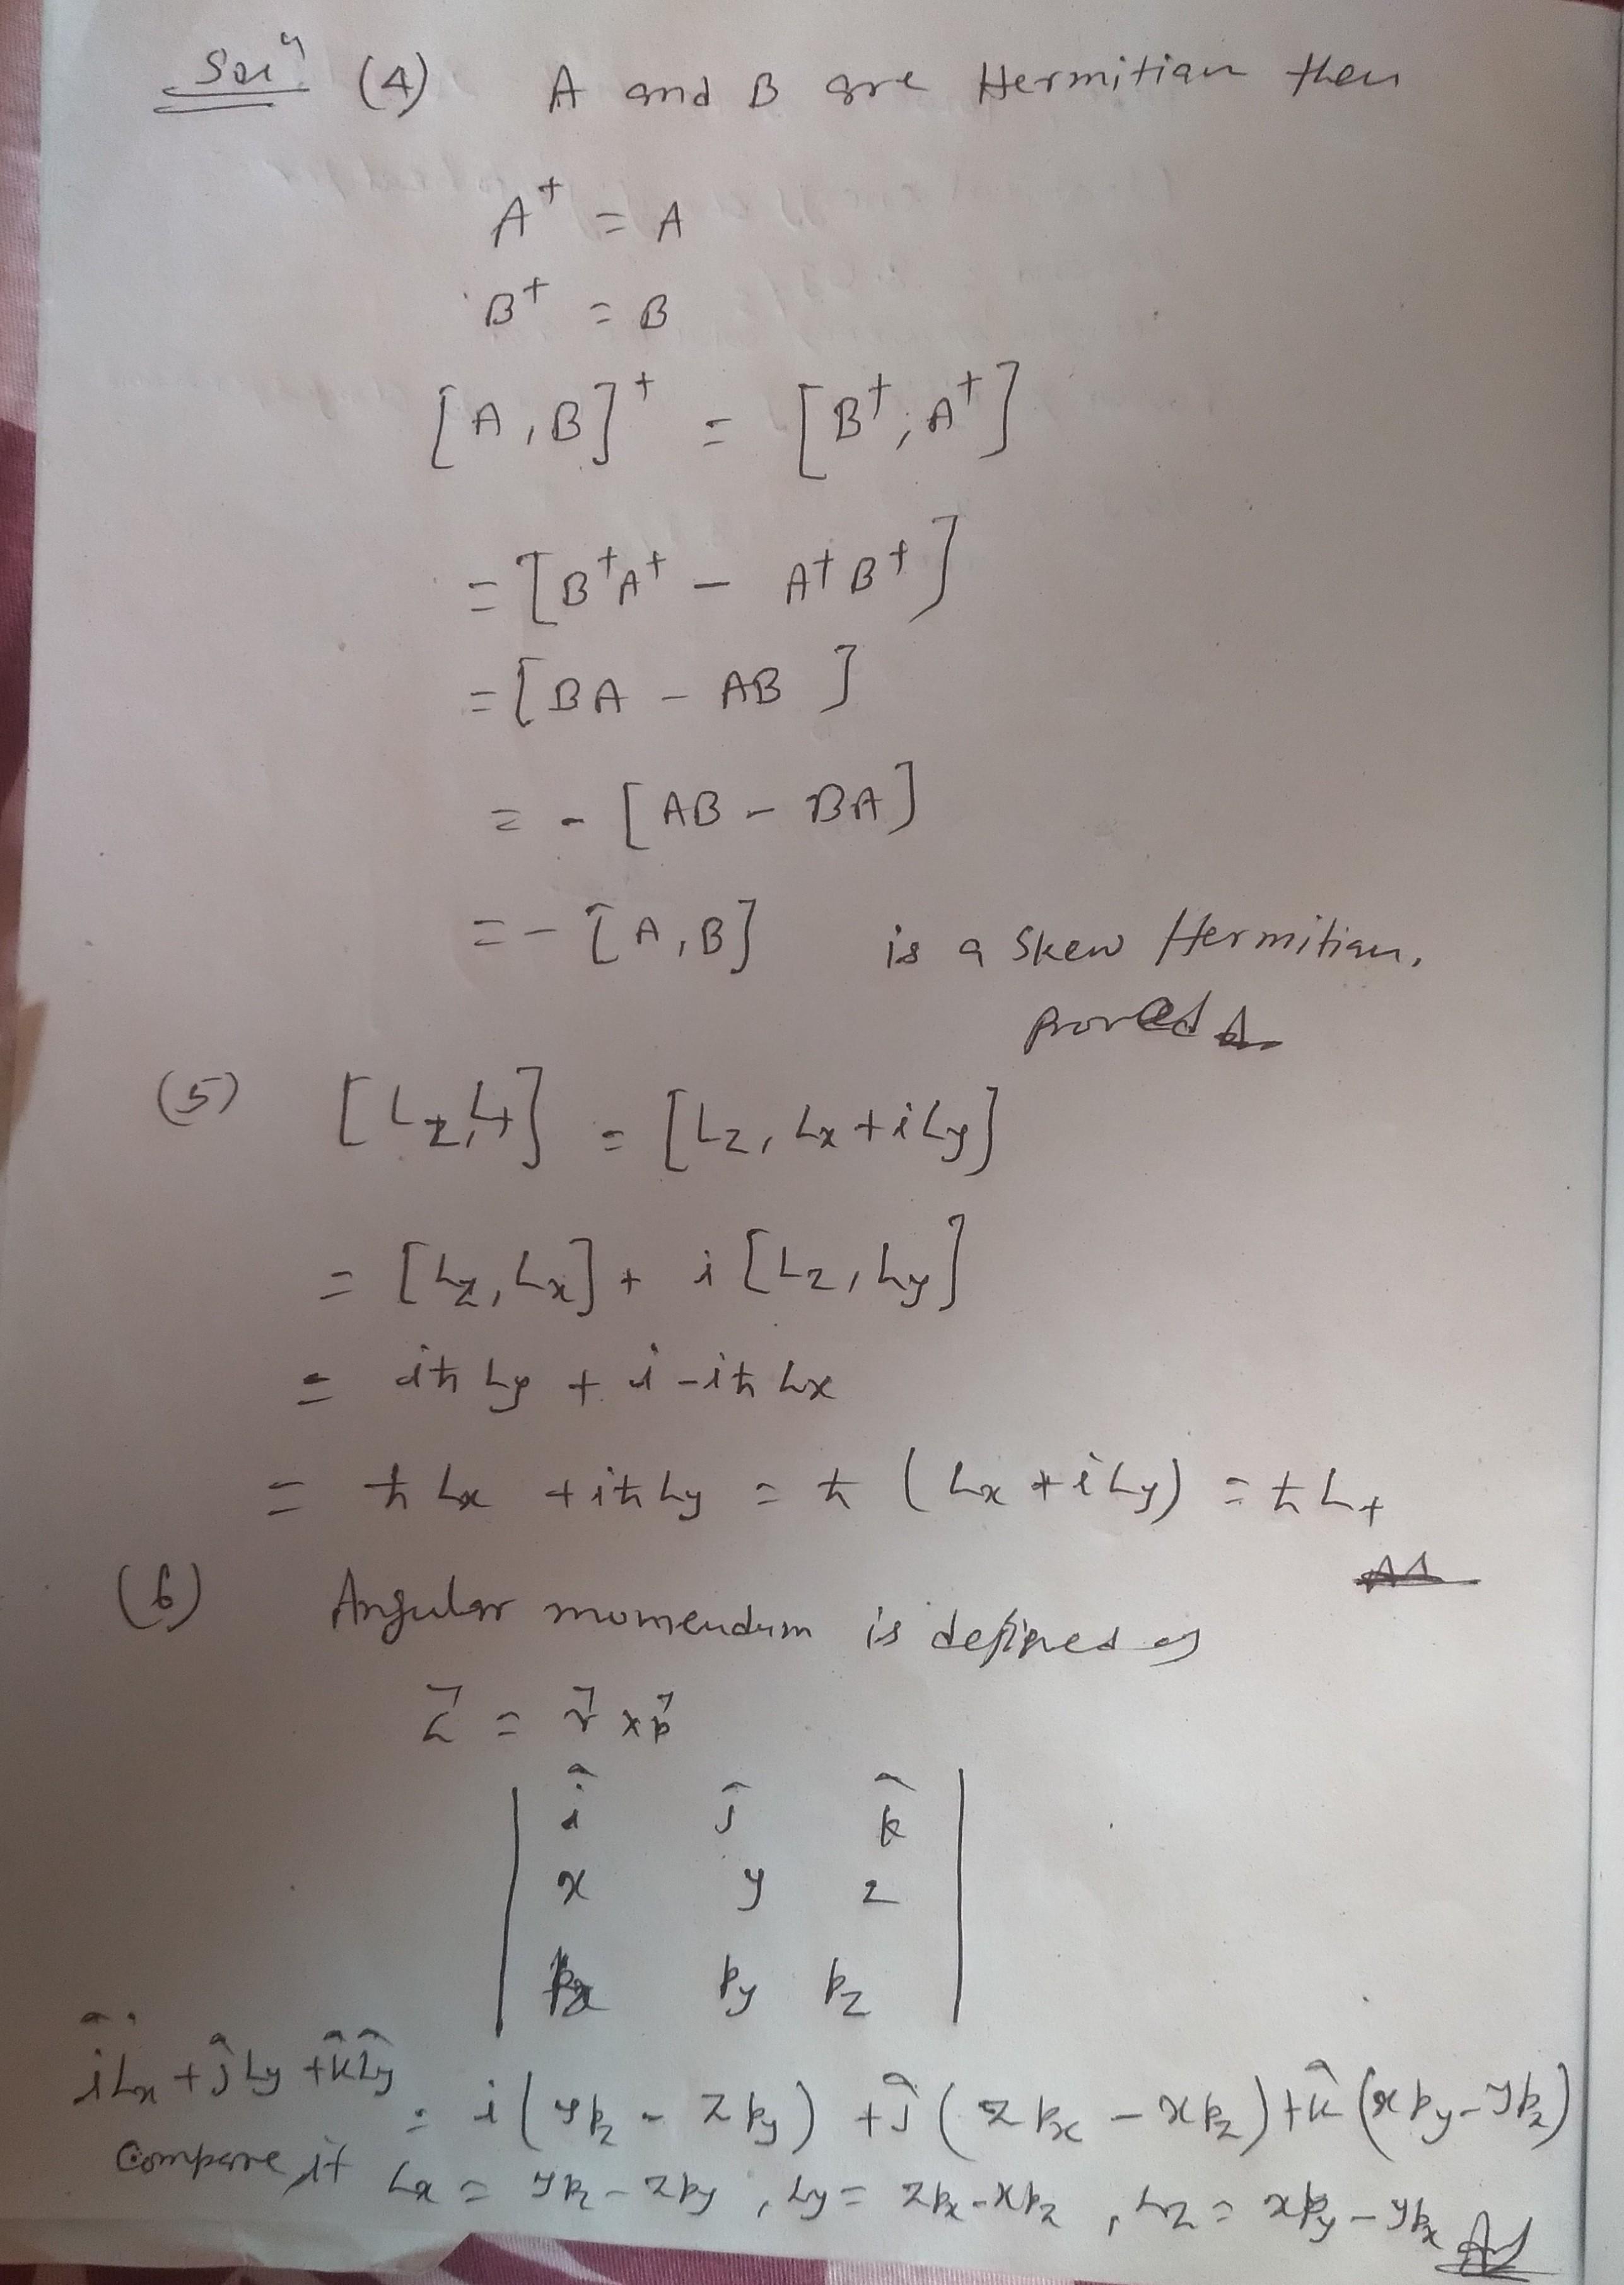 Solⁿ (4) A and B are Hermitian then
A† = A
B† = B
[A,B]† = [B†, A†]
= [B†A† - A†B†]
= [BA - AB]
= - [AB - BA]
= - [A,B] is a Skew Hermitian.
proved
(5) [Lz, L+] = [Lz, Lx + iLy]
= [Lz, Lx] + i [Lz, Ly]
= iħ Ly + i -iħ Lx
= ħ Lx + iħ Ly = ħ (Lx + iLy) = ħ L+
(6) Angular momendum is defined as
L⃗ = r⃗ × p⃗
î ĵ k̂
x y z
px py pz
îLx + ĵLy + k̂Ly = i(ypz - zpy) + ĵ(zpx - xpz) + k̂(xpy - ypz)
Compare it Lx = ypz - zpy, Ly = zpx - xpz, Lz = xpy - ypx